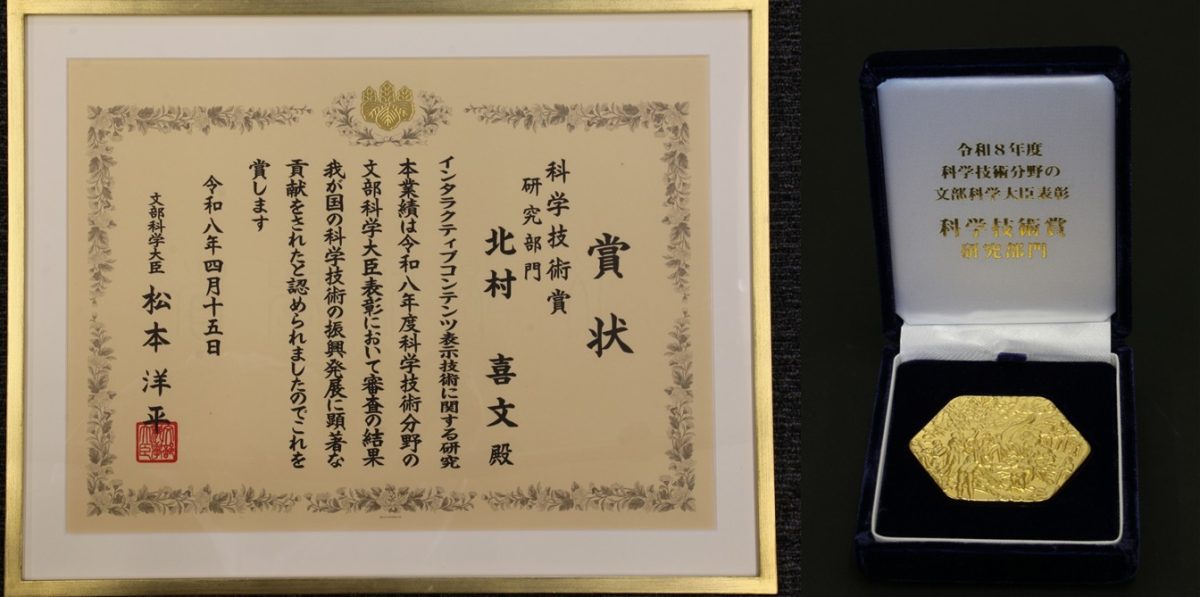 賞状
科学技術賞
研究部門
北村 喜文 殿
インタラクティブコンテンツ表示技術に関する研究
本業績は令和八年度科学技術分野の
文部科学大臣表彰において審査の結果
我が国の科学技術の振興発展に顕著な
貢献をされたと認められましたのでこれを
賞します
令和八年四月十五日
文部科学大臣 松本 洋平
令和8年度
科学技術分野の
文部科学大臣表彰
科学技術賞
研究部門